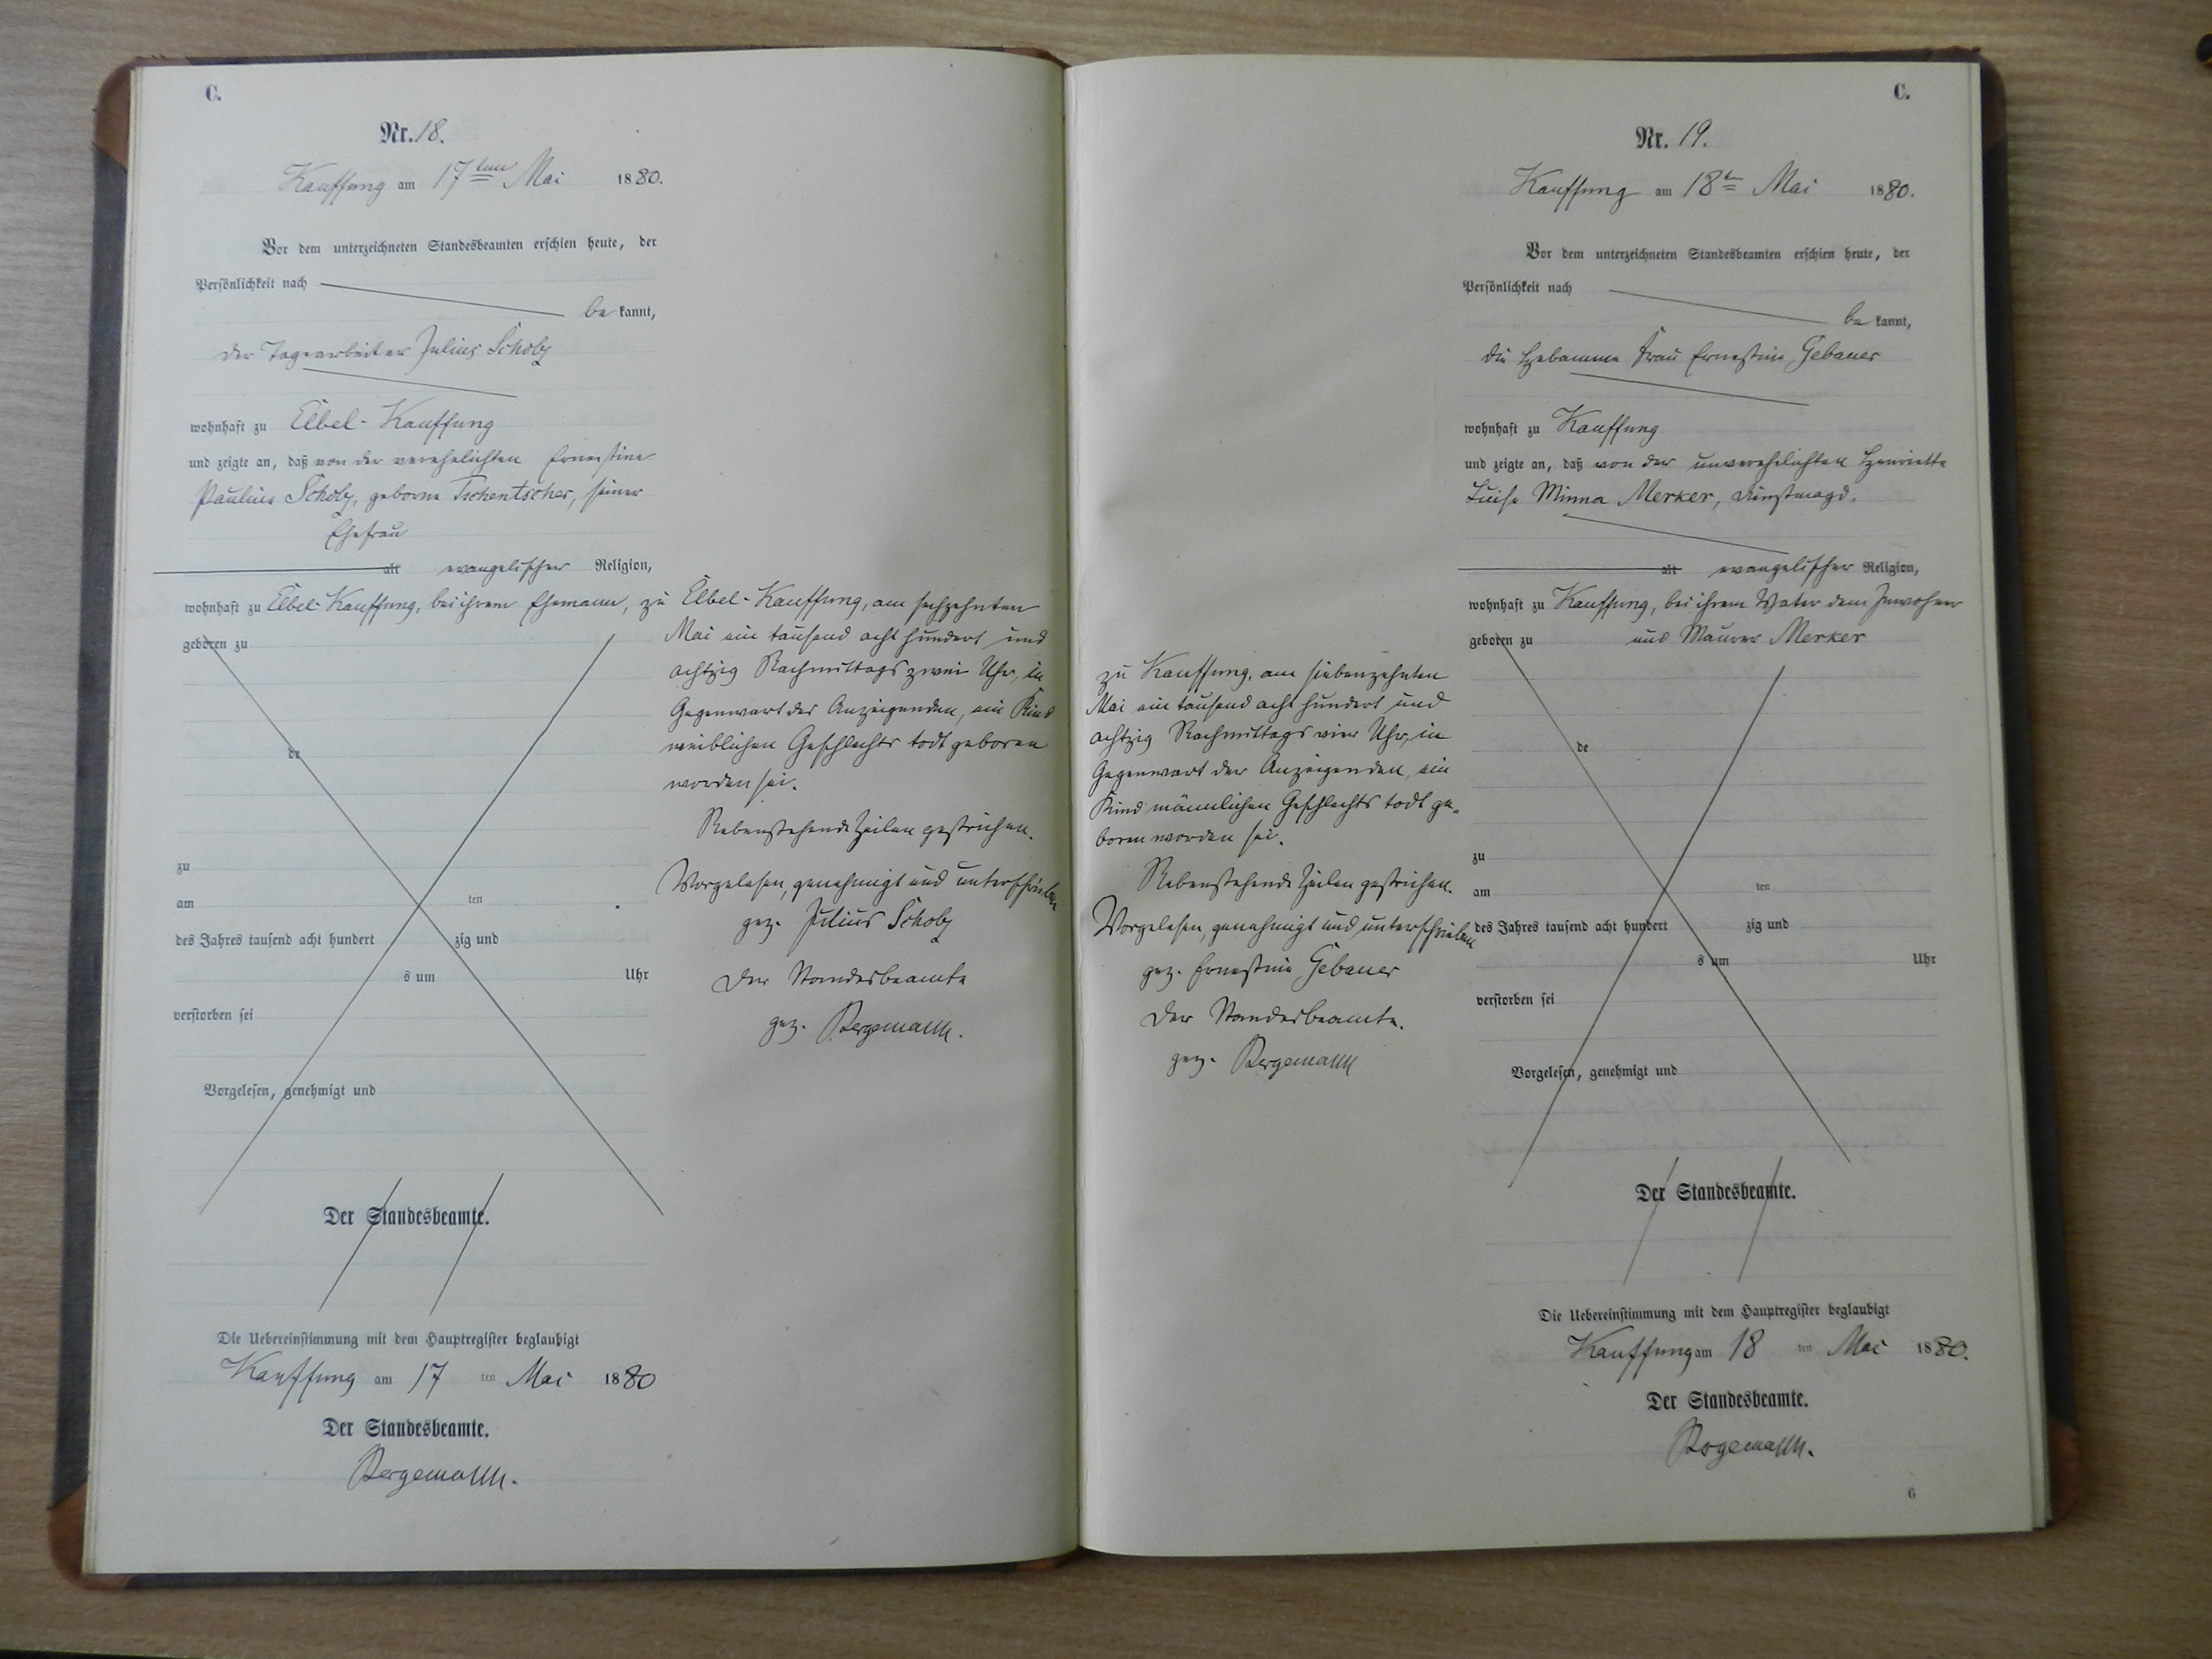 C.
Nr. 18.
Kauffung am 17ten Mai 1880.
Vor dem unterzeichneten Standesbeamten erschien heute, der
Persönlichkeit nach
be kannt,
der Tagearbeiter Julius Scholz
wohnhaft zu Elbel-Kauffung
und zeigte an, daß von der verehelichten Ernestine
Pauline Scholz, geborne Tschentscher, seiner
Ehefrau
alt evangelischer Religion,
wohnhaft zu Elbel-Kauffung, bei ihrem Ehemann, zu
geboren zu
de
zu
am ten
des Jahres tausend acht hundert zig und
s um Uhr
verstorben sei
Vorgelesen, genehmigt und
Der Standesbeamte.
Die Uebereinstimmung mit dem Hauptregister beglaubigt
Kauffung am 17 ten Mai 1880
Der Standesbeamte.
Bergemann.
Elbel-Kauffung, am sechzehnten
Mai ein tausend acht hundert und
achtzig Nachmittags zwei Uhr, in
Gegenwart des Anzeigenden, ein Kind
weiblichen Geschlechts todt geboren
worden sei.
Nebenstehende Zeilen gestrichen.
Vorgelesen, genehmigt und unterschrieben
gez. Julius Scholz
Der Standesbeamte
gez. Bergemann.
C.
Nr. 19.
Kauffung am 18ten Mai 1880.
Vor dem unterzeichneten Standesbeamten erschien heute, der
Persönlichkeit nach
be kannt,
die Hebamme Frau Ernestine Gebauer
wohnhaft zu Kauffung
und zeigte an, daß von der unverehelichten Henriette
Luise Minna Merker, Dienstmagd,
alt evangelischer Religion,
wohnhaft zu Kauffung, bei ihrem Vater dem Inwohner
geboren zu und Maurer Merker
de
zu
am ten
des Jahres tausend acht hundert zig und
s um Uhr
verstorben sei
Vorgelesen, genehmigt und
Der Standesbeamte.
Die Uebereinstimmung mit dem Hauptregister beglaubigt
Kauffung am 18 ten Mai 1880.
Der Standesbeamte.
Bergemann.
6
zu Kauffung, am siebenzehnten
Mai ein tausend acht hundert und
achtzig Nachmittags vier Uhr, in
Gegenwart der Anzeigenden, ein
Kind männlichen Geschlechts todt ge-
boren worden sei.
Nebenstehende Zeilen gestrichen.
Vorgelesen, genehmigt und unterschrieben
gez. Ernestine Gebauer
Der Standesbeamte.
gez. Bergemann